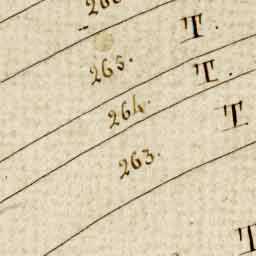 T.
265. T.
264. T
263.
T